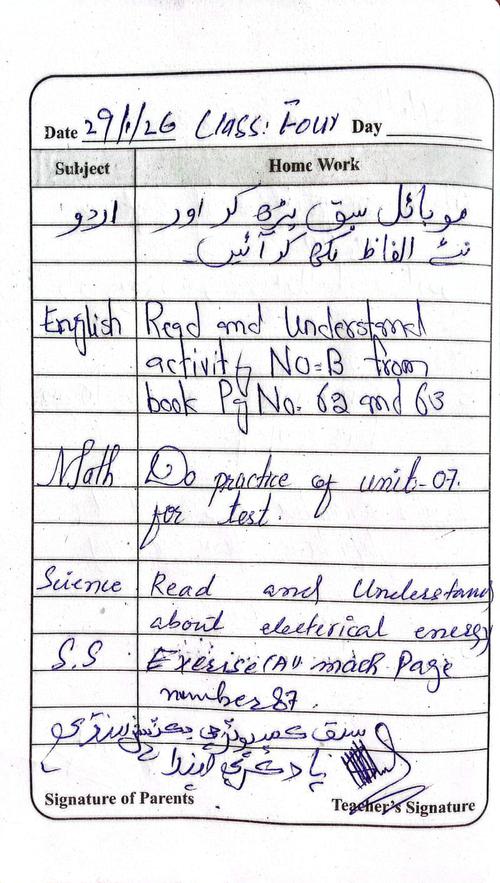 Date 29/1/26 Class: Four Day
Subject Home Work
اردو موبائل سبق پڑھ کر اور
نئے الفاظ لکھ کر آئیں۔
English Read and Understand
activity NO=B from
book Pg No. 62 and 63
Math Do practice of unit-07.
for test.
Science Read and Understand
about electerical energy
S.S Exersise (A) mach Page
number 87.
سبق ڪمپيوٽر جي
ياد ڪري ايندا
Signature of Parents Teacher's Signature